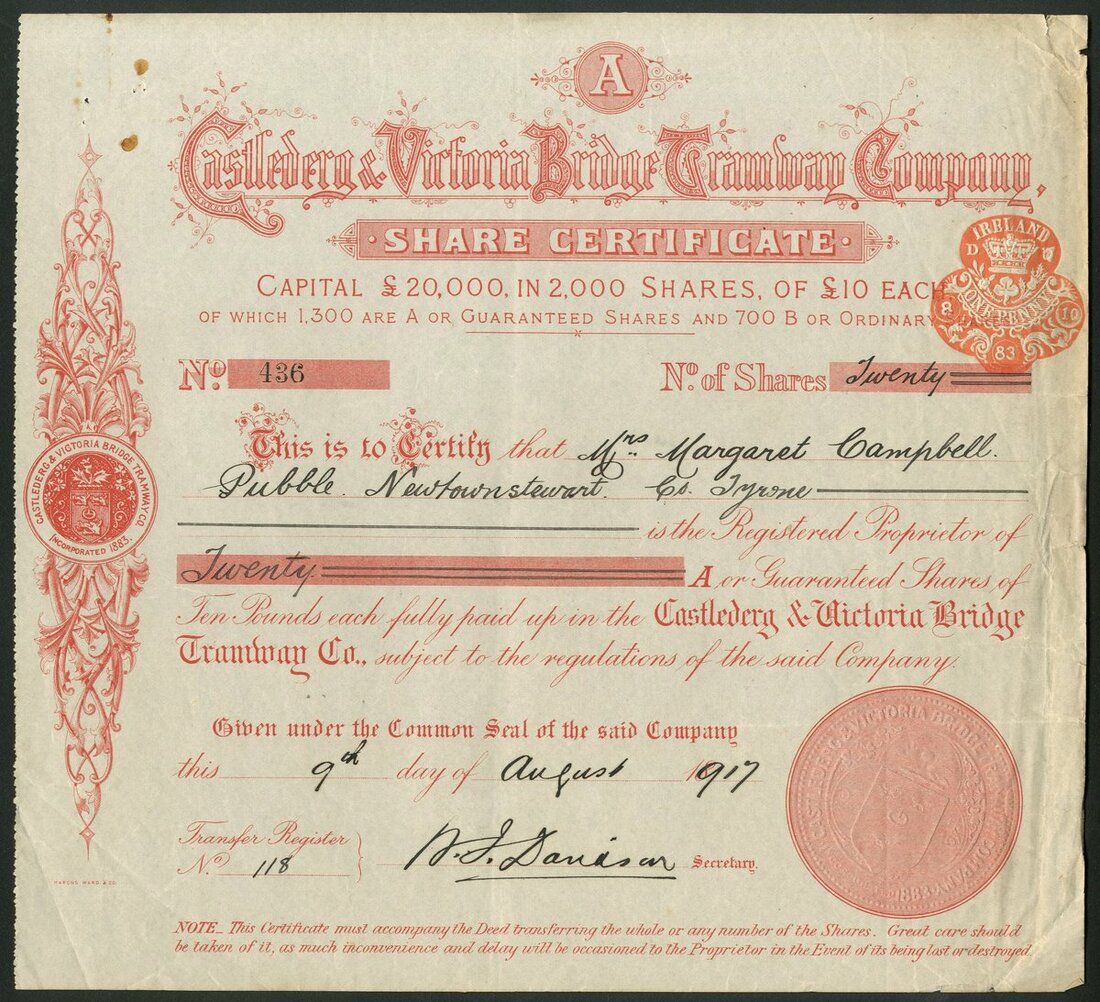 A
Castlederg & Victoria Bridge Tramway Company,
· SHARE CERTIFICATE ·
CAPITAL £20,000, IN 2,000 SHARES, OF £10 EACH
OF WHICH 1,300 ARE A OR GUARANTEED SHARES AND 700 B OR ORDINARY
IRELAND
D
ONE PENNY
8 10
83
No. 436 No. of Shares Twenty
This is to Certify that Mrs. Margaret Campbell.
Pubble. Newtownstewart. Co. Tyrone
is the Registered Proprietor of
Twenty A or Guaranteed Shares of
Ten Pounds each fully paid up in the Castlederg & Victoria Bridge
Tramway Co., subject to the regulations of the said Company.
CASTLEDERG & VICTORIA BRIDGE TRAMWAY CO.
INCORPORATED 1883.
Given under the Common Seal of the said Company
this 9th day of August 1917
Transfer Register
No. 118
Davidson Secretary.
CASTLEDERG & VICTORIA BRIDGE TRAMWAY COMPANY
1883
MARCUS WARD & CO.
NOTE_ This Certificate must accompany the Deed transferring the whole or any number of the Shares. Great care should
be taken of it, as much inconvenience and delay will be occasioned to the Proprietor in the Event of its being lost or destroyed.